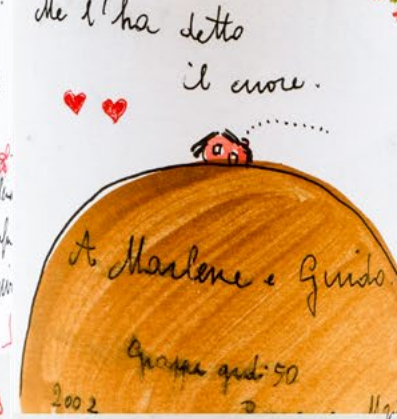 Me l'ha detto
il cuore.
A Marlene e Guido
Grappa gradi 50
2002